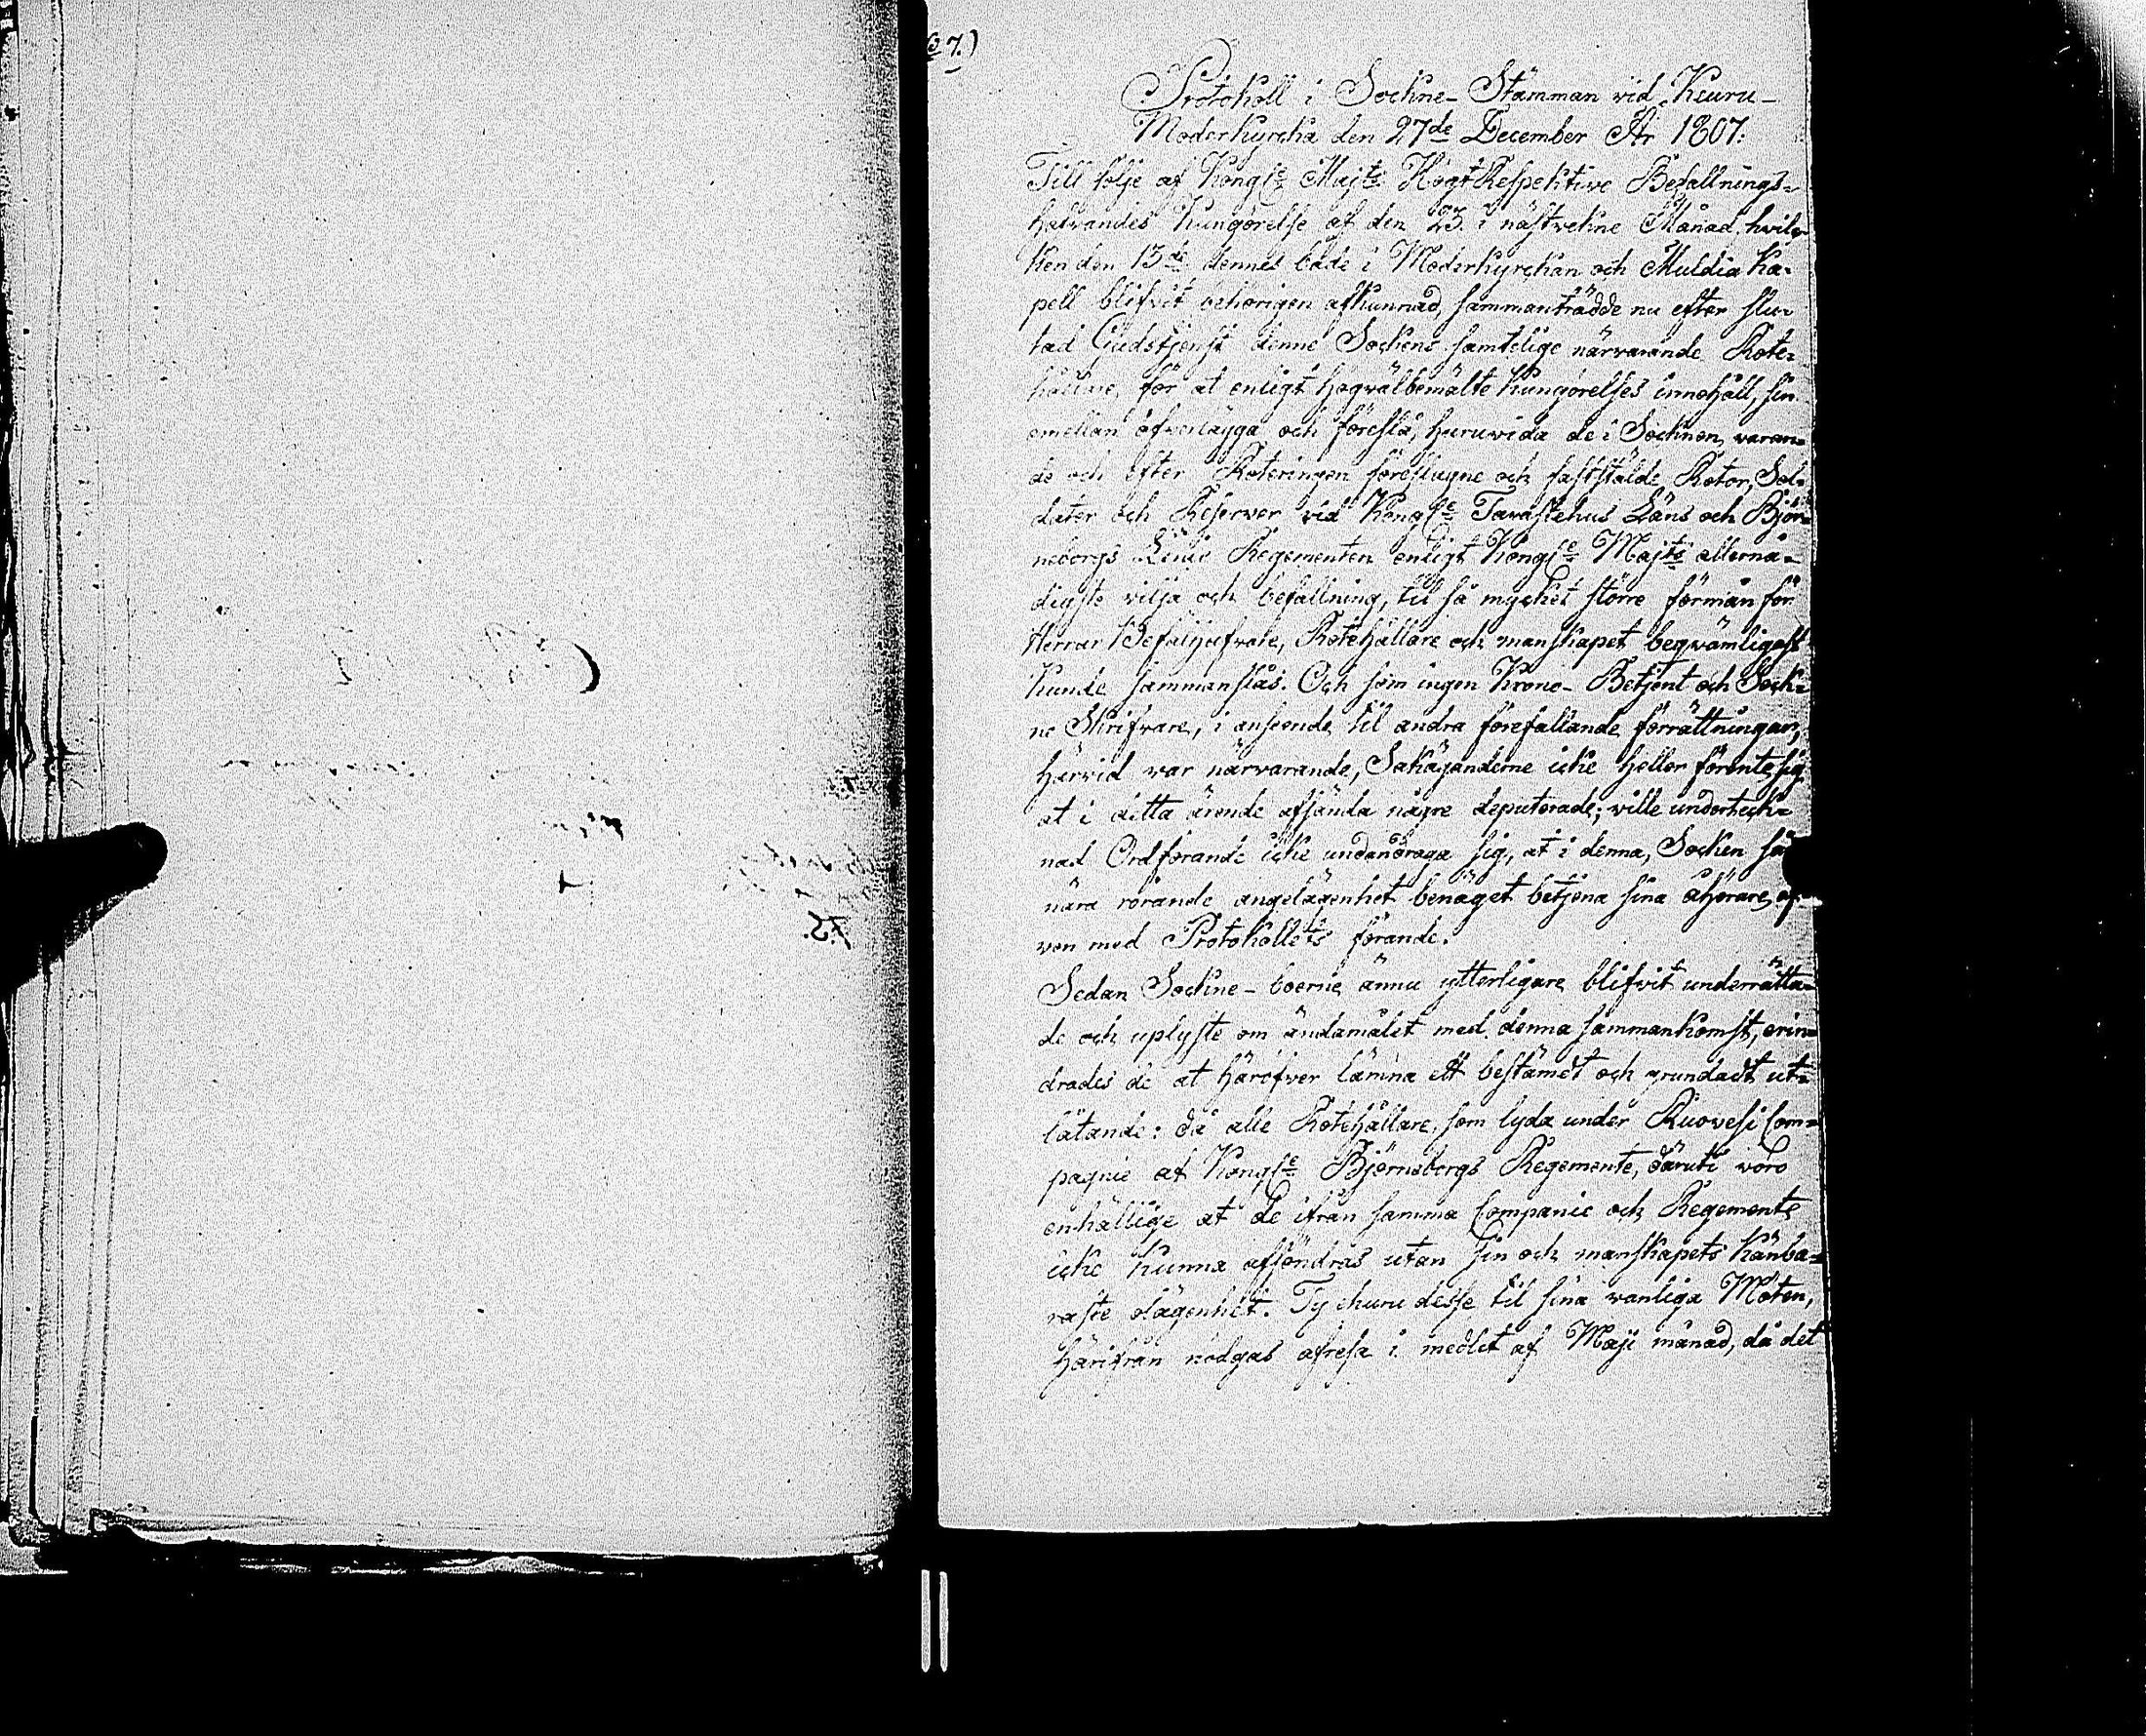 7.)
Protokoll i Sockne-Stämman vid Keuru-
Moderkyrcka den 27de December År 1807:
Till följe af Kongl:e Maj:ts HögtRespektive Befallnings-
hafvandes Kungörelse af den 23. i nästvekne Månad, hvil-
ken den 13de dennes både i Moderkyrckan och Muldia Ka-
pell blifvit behörigen afkunnad, sammanträdde nu efter slu-
tad Gudstjenst denne Sockens samtelige närvarande Rote-
hållare, för at enligt högvälbemälte Kungörelses innehåll, sin
emellan öfverlägga och föreslå, huruvida de i Socknen varan-
de och efter Roteringen föreslagne och faststälde Rotor, Sol-
dater och Reserver vid Kongl:e Tavastehus Läns och Björ-
neborgs Läns Regementen enligt Kongl:e Maj:ts allernå-
digste vilja och befallning, til så myckét större förmån för
Herrar Befälhafvare, Rotehållare och manskapet beqvämligast
kunde sammanslås. Och som ingen Krono-Betjent och Sock-
ne Skrifvare, i anseende til andra förefallande förrättningar,
härvid var närvarande, Sakäganderne icke heller förente sig
at i detta ärende afsända någre deputerade; ville underteck-
nad Ordförande icke undandraga sig, at i denna, Socken så
nära rörande angelägenhet benäget betjena sina åhörare, äf-
ven med Protokollets förande.
Sedan Sockne-boerne ännu ytterligare blifvit underrätta-
de och uplyste om ändamålet med denna sammankomst, erin-
drades de at häröfver lämna ett bestämdt och grundadt ut-
låtande: då alle Rotehållare, som lyda under Ruovesi Com-
pagnie af Kongl:e Björneborgs Regemente, däruti voro
enhällige at de ifrån samma Companie och Regemente
icke kunna afsöndras utan sin och manskapets känba-
raste olägenhet. Ty ehuru desse til sina vanliga Möten,
härifrån nödgas afresa i medlet af Maji månad, då det